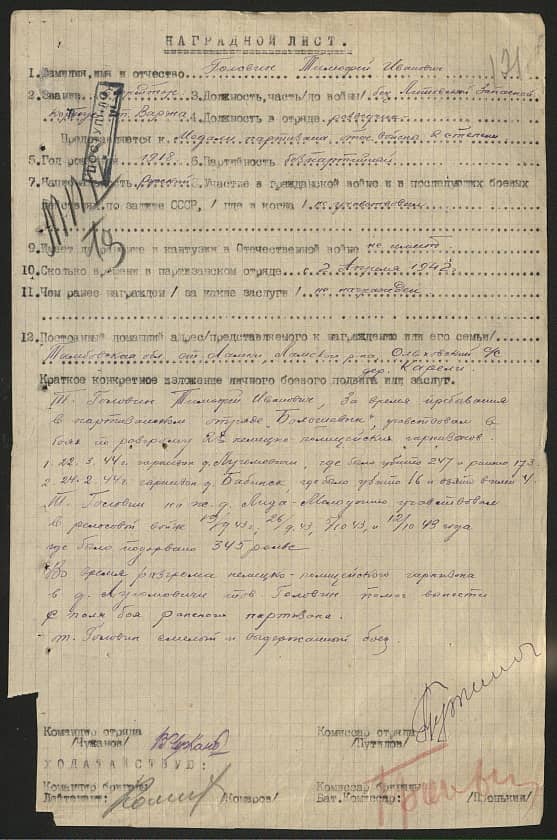 НАГРАДНОЙ ЛИСТ.
121
1. Фамилия, имя и отчество Головин Тимофей Иванович
2. Звание 3. Должность, часть /до войны/
4. Должность в отряде разведчик
Представляется к Медали партизана отеч. войны 2 степени
ПОСТУПИЛО
5. Год рождения 1918 6. Партийность беспартийный
7. Русский 8. Участие в гражданской войне и в последующих боевых
действиях по защите СССР, /где и когда/ не участвовал
9. ранения и контузии в Отечественной войне не имеет
10. Сколько времени в партизанском отряде с 2 Апреля 1942 г
11. Чем ранее награжден /за какие заслуги/ не награжден
12. Постоянный домашний адрес/представляемого к награждению или его семьи/
Тамбовская обл ст. Ламки, Ламский р-на, с/с
дер. Карели
Краткое конкретное изложение личного боевого подвига или заслуг.
Т. Головин Тимофей Иванович, За время пребывания
в партизанском отряде участвовал в
боях по разгрому 2х немецко-полицейских гарнизонов.
1. 22.3.44г. гарнизон д. где было убито 247 и ранено 173
2. 24.2.44г. гарнизон д. Бабинск, где было убито 16 и взято в плен 4.
Т. Головин на ж.д. Лида-Молодечно участвовал
в рельсовой войне 43г, 26/9.43, 43, и 12/10 43 года
где было подорвано 345 рельс
Во время разгрома немецко-полицейского гарнизона
в д. тов Головин помог вынести
с поля боя раненого партизана.
- т. Головин смелый и выдержанный боец.
Командир отряда Комиссар отряда
/Чуканов/ /Путилов/
ХОДАТАЙСТВУЮ:
Командир бригады Комиссар бригады
Лейтенант: /Комаров/ Бат. Комиссар: /Пронькин/